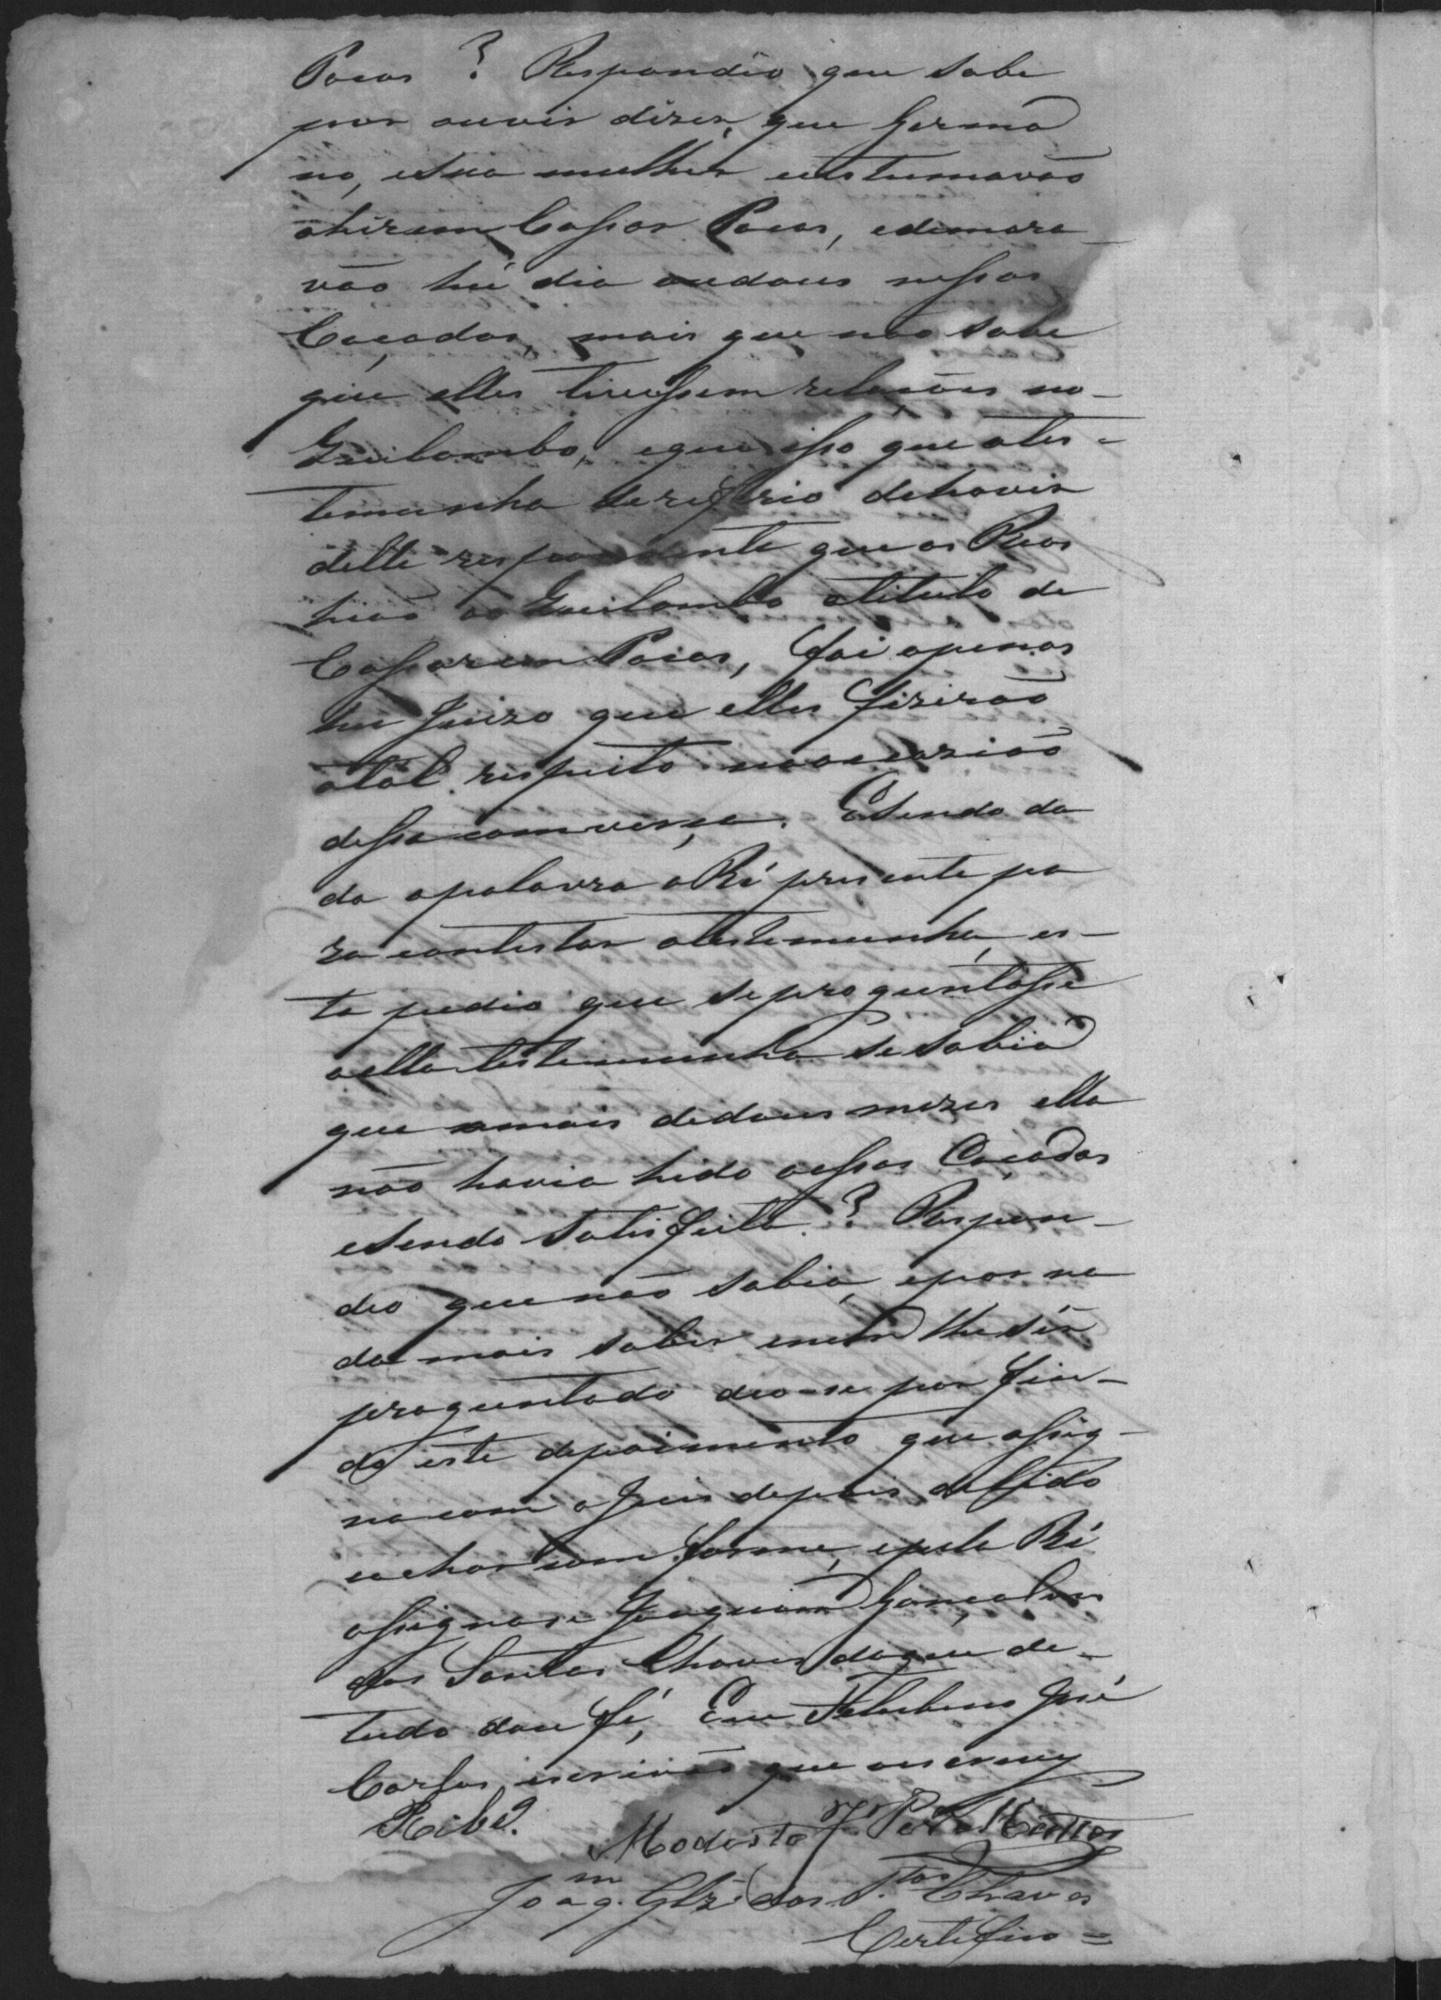 Pacas? Respondeo que sabe
por ouvir dizer, que Germa
no, esua mulher custumavão
ahirem Cassar Pacas, edemora-
vão hú dia oudous nessas
Caçadas, mais que não sabe
que elles tivessem relacões no-
Quilombo, eque isso que ates-
temunha serefirio dehavir
delle respondente que os Reos
hião ao Quilombo atitulo de
Cassarem Pacas, foi apenas
hu Juizo que elles fizirão
atal respeito naocazião
dessa comversa. Esendo da
da apalavra aRé presente pa
ra contestar atestemunha, es-
ta pedio que seproguntasse
aella testemunha se sabia
que amais dedous mezes ella
não havia hido aessas Caçadas
esendo satisfeita? Respon-
deo que não sabia, epor na
da mais saber nem lhe sér
proguntado deo-se por fin-
do este depoimento que assig-
na com o Juis depois delhe sido
eachar comforme, epela Ré
assignase Joaquim Gonçalves
dos Santos Chaves doque de-
tudo dou fé, Eu José
escrivão que escrevy
Ribr.o
Modesto
Joaq.m Glz' dos S.tos Chaves
Certefico =